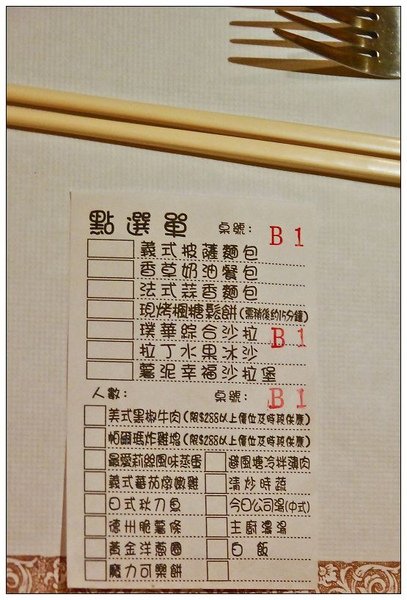 點選單 桌號: B 1
義式披薩麵包
香草奶油餐包
法式蒜香麵包
現烤楓糖鬆餅(需稍後約15分鐘)
璞華綜合沙拉 B 1
拉丁水果冰沙
薯泥幸福沙拉堡
人數: 桌號: B 1
美式黑椒牛肉(限$288以上價位及時段供應)
帕爾瑪炸雞塊(限$288以上價位及時段供應)
最愛莉絲風味蒸蛋 避風塘冷拌滷肉
義式蕃茄燉嫩雞 清炒時蔬
日式秋刀魚 今日公司湯(中式)
德州脆薯條 主廚濃湯
黃金洋蔥圈 白飯
魔力可樂餅